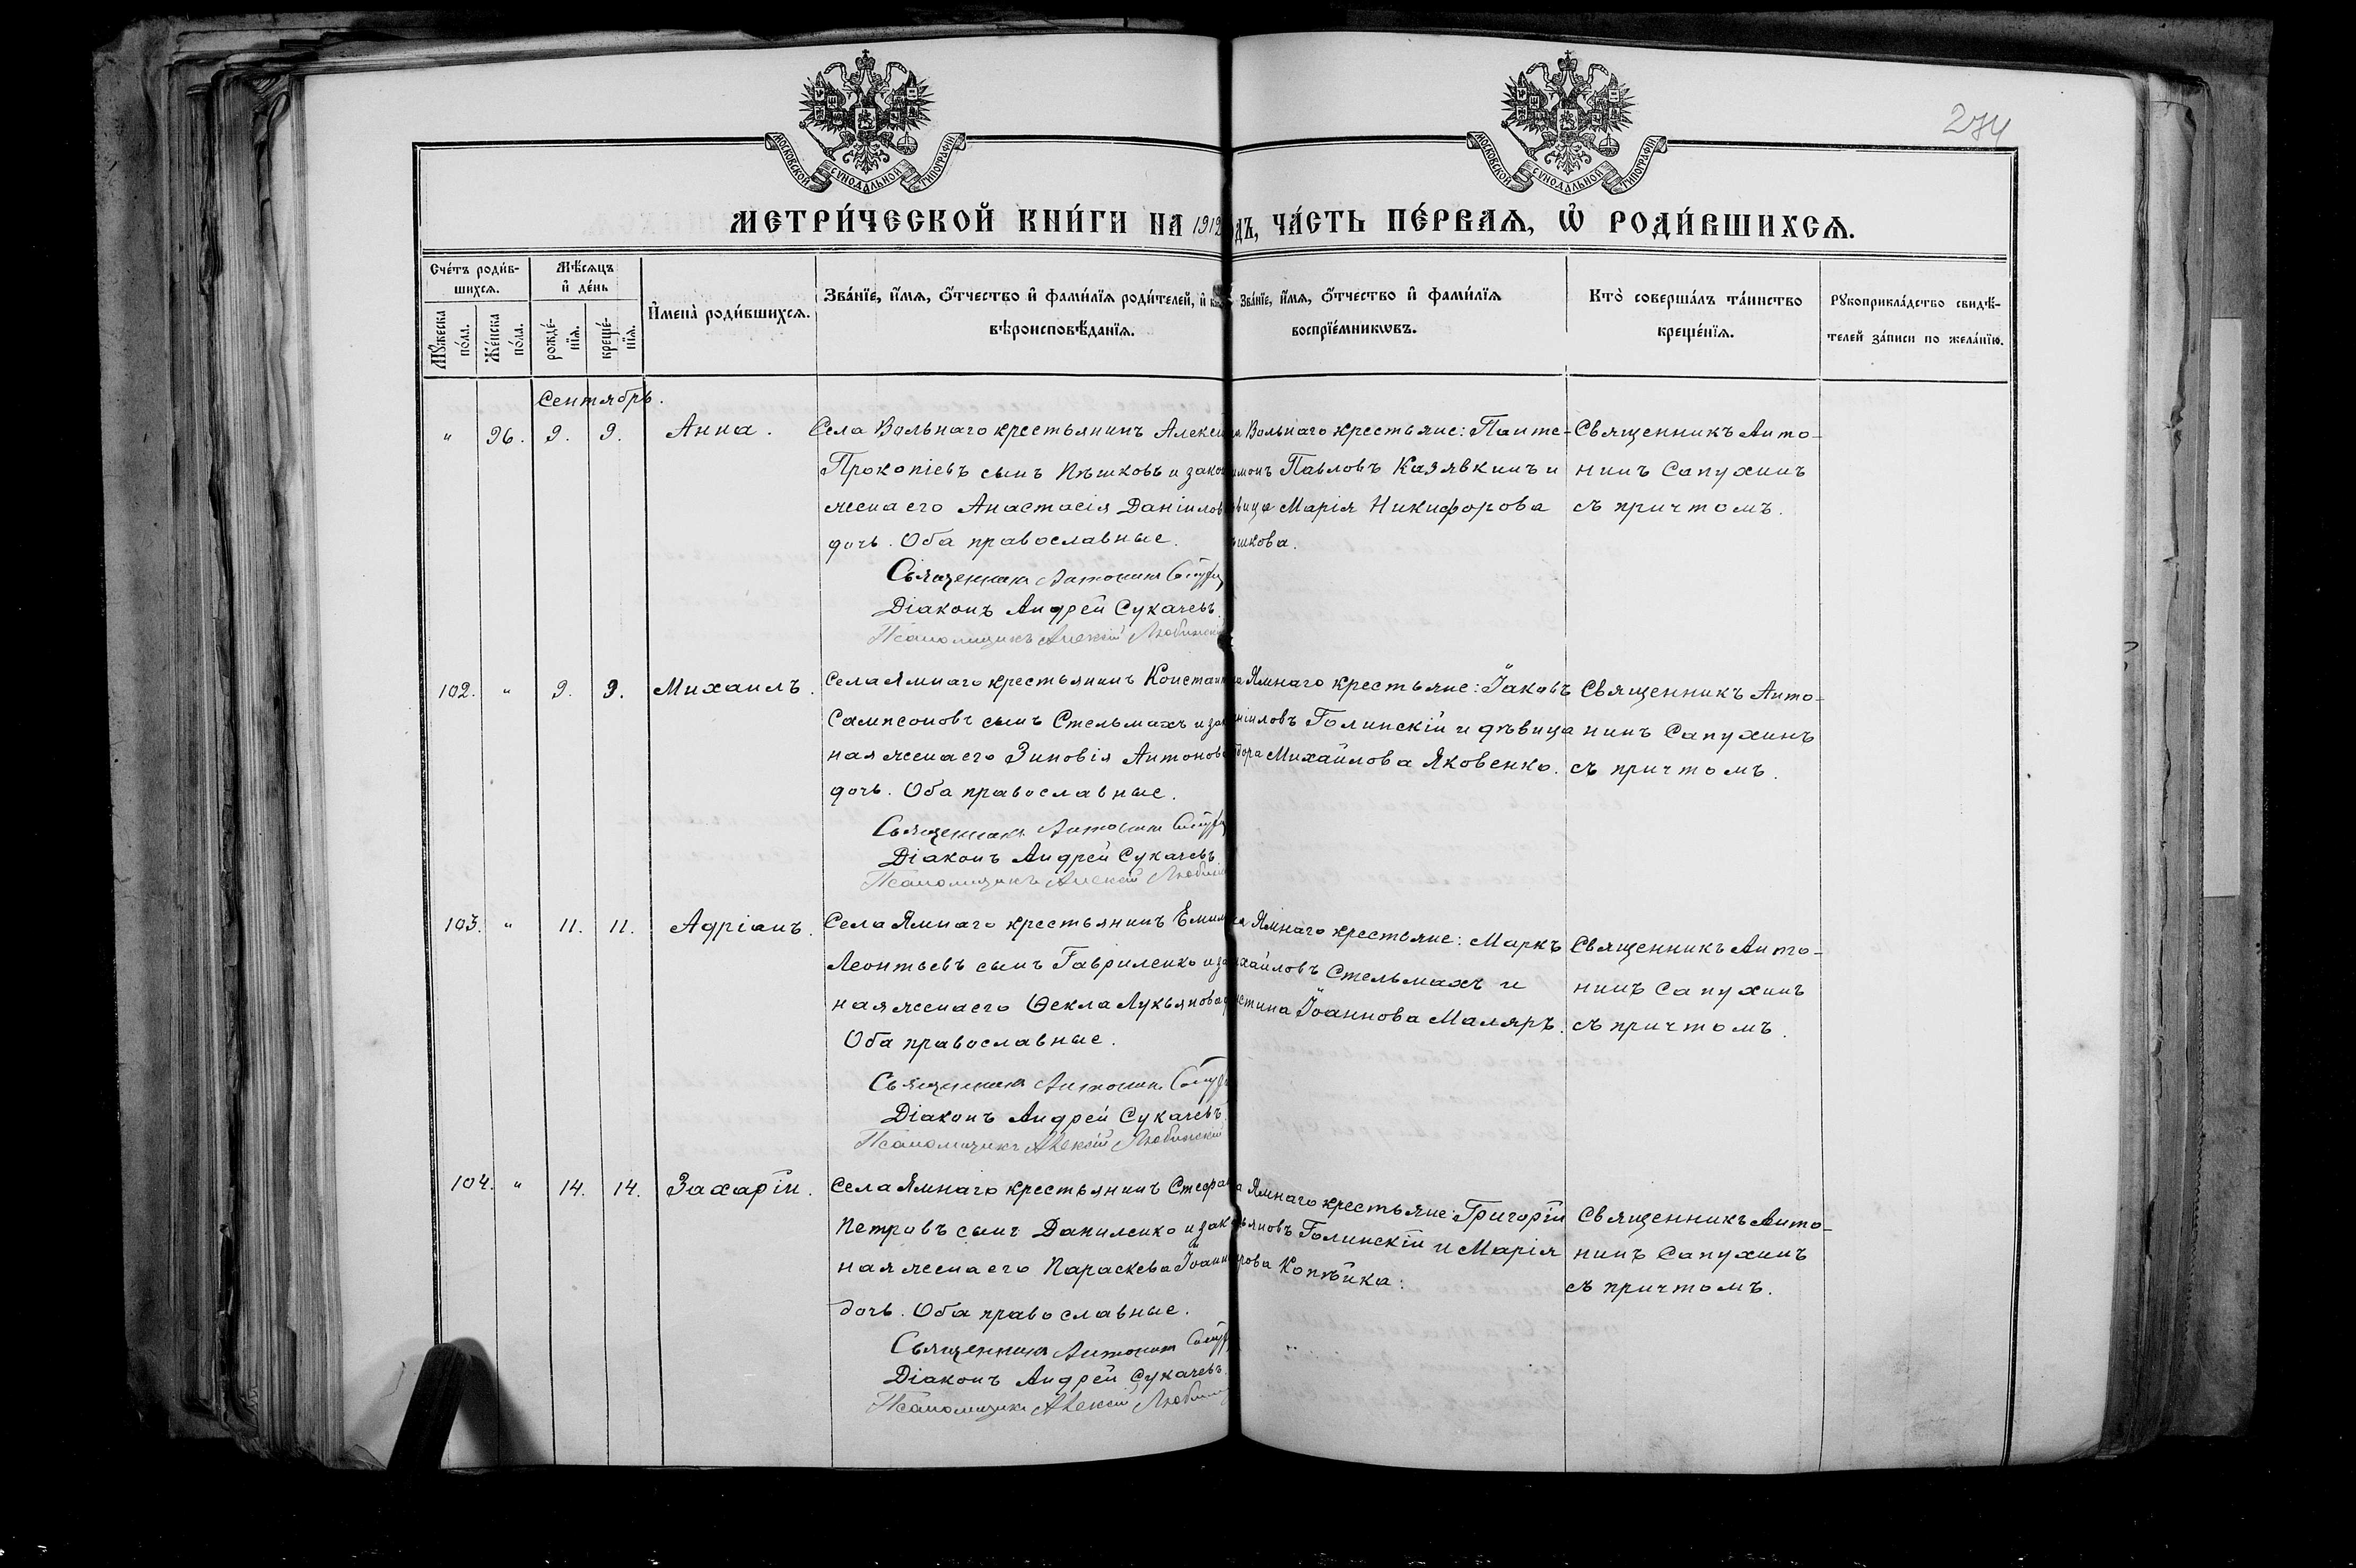 274
МОСКОВСКОЙ СУНОДАЛЬНОЙ ТИПОГРАФІИ
МОСКОВСКОЙ СУНОДАЛЬНОЙ ТИПОГРАФІИ
МЕТРИ́ЧЕСКОЙ КНИ́ГИ НА 1912 ДЪ, ЧА́СТЬ ПЕ́РВАѦ, Ѡ҆ РОДИ́ВШИХСѦ.
Сче́тъ роди́в-
шихсѧ.
Мѣ́сѧцъ
и҆ де́нь
Мꙋ́жеска
по́ла.
Же́нска
по́ла.
рожде́-
нїѧ.
креще́-
нїѧ.
И҆мена̀ роди́вшихсѧ.
Зва́нїе, и҆́мѧ, ѻ҆́тчество и҆ фами́лїѧ роди́телей, и҆
вѣроисповѣ́данїѧ.
Зва́нїе, и҆́мѧ, ѻ҆́тчество и҆ фами́лїѧ
воспрїе́мникѡвъ.
Кто̀ соверша́лъ та́инство
креще́нїѧ.
Рꙋкоприкла́дство свидѣ́-
телей за́писи по жела́нїю.
Сентябрь.
" 96. 9. 9. Анна.
Села Вольнаго крестьянинъ Алексѣй
Прокопіевъ сынъ Пѣшковъ и закон
жена его Анастасія Даніилов
дочь. Оба православные.
Священникъ Антонинъ
Діаконъ Андрей Сукачевъ
Псаломщикъ Алексій Любинскій
на Вольнаго крестьяне: Панте-
имонъ Павловъ Казявкинъ и
вица Марія Никифорова
шкова.
Священникъ Анто-
нинъ Сапухинъ
съ причтомъ.
102. " 9. 9. Михаилъ.
Села Ямнаго крестьянинъ Констант
Сампсоновъ сынъ Стельмахъ и зак
ная жена его Зиновія Антонова
дочь. Оба православные.
Священникъ Антонинъ
Діаконъ Андрей Сукачевъ
Псаломщикъ Алексій Любинскій
а Ямнаго крестьяне: Іаковъ
ніиловъ Голинскій и дѣвица
дора Михайлова Яковенко.
Священникъ Анто-
нинъ Сапухинъ
съ причтомъ.
103. " 11. 11. Адріанъ.
Села Ямнаго крестьянинъ Емил
Леонтьевъ сынъ Гавриленко и за
ная жена его Ѳекла Лукьянова
Оба православные.
Священникъ Антонинъ
Діаконъ Андрей Сукачевъ
Псаломщикъ Алексій Любинскій
а Ямнаго крестьяне: Маркъ
хайловъ Стельмахъ и
стина Іоаннова Маляръ.
Священникъ Анто-
нинъ Сапухинъ
съ причтомъ.
104. " 14. 14. Захарій.
Села Ямнаго крестьянинъ Стефан
Петровъ сынъ Даниленко и зак
ная жена его Параскева Іоанн
дочь. Оба православные.
Священникъ Антонинъ
Діаконъ Андрей Сукачевъ
Псаломщикъ Алексій Любинскій
а Ямнаго крестьяне: Григорій
ьяновъ Голинскій и Марія
рова Копѣйка.
Священникъ Анто-
нинъ Сапухинъ
съ причтомъ.